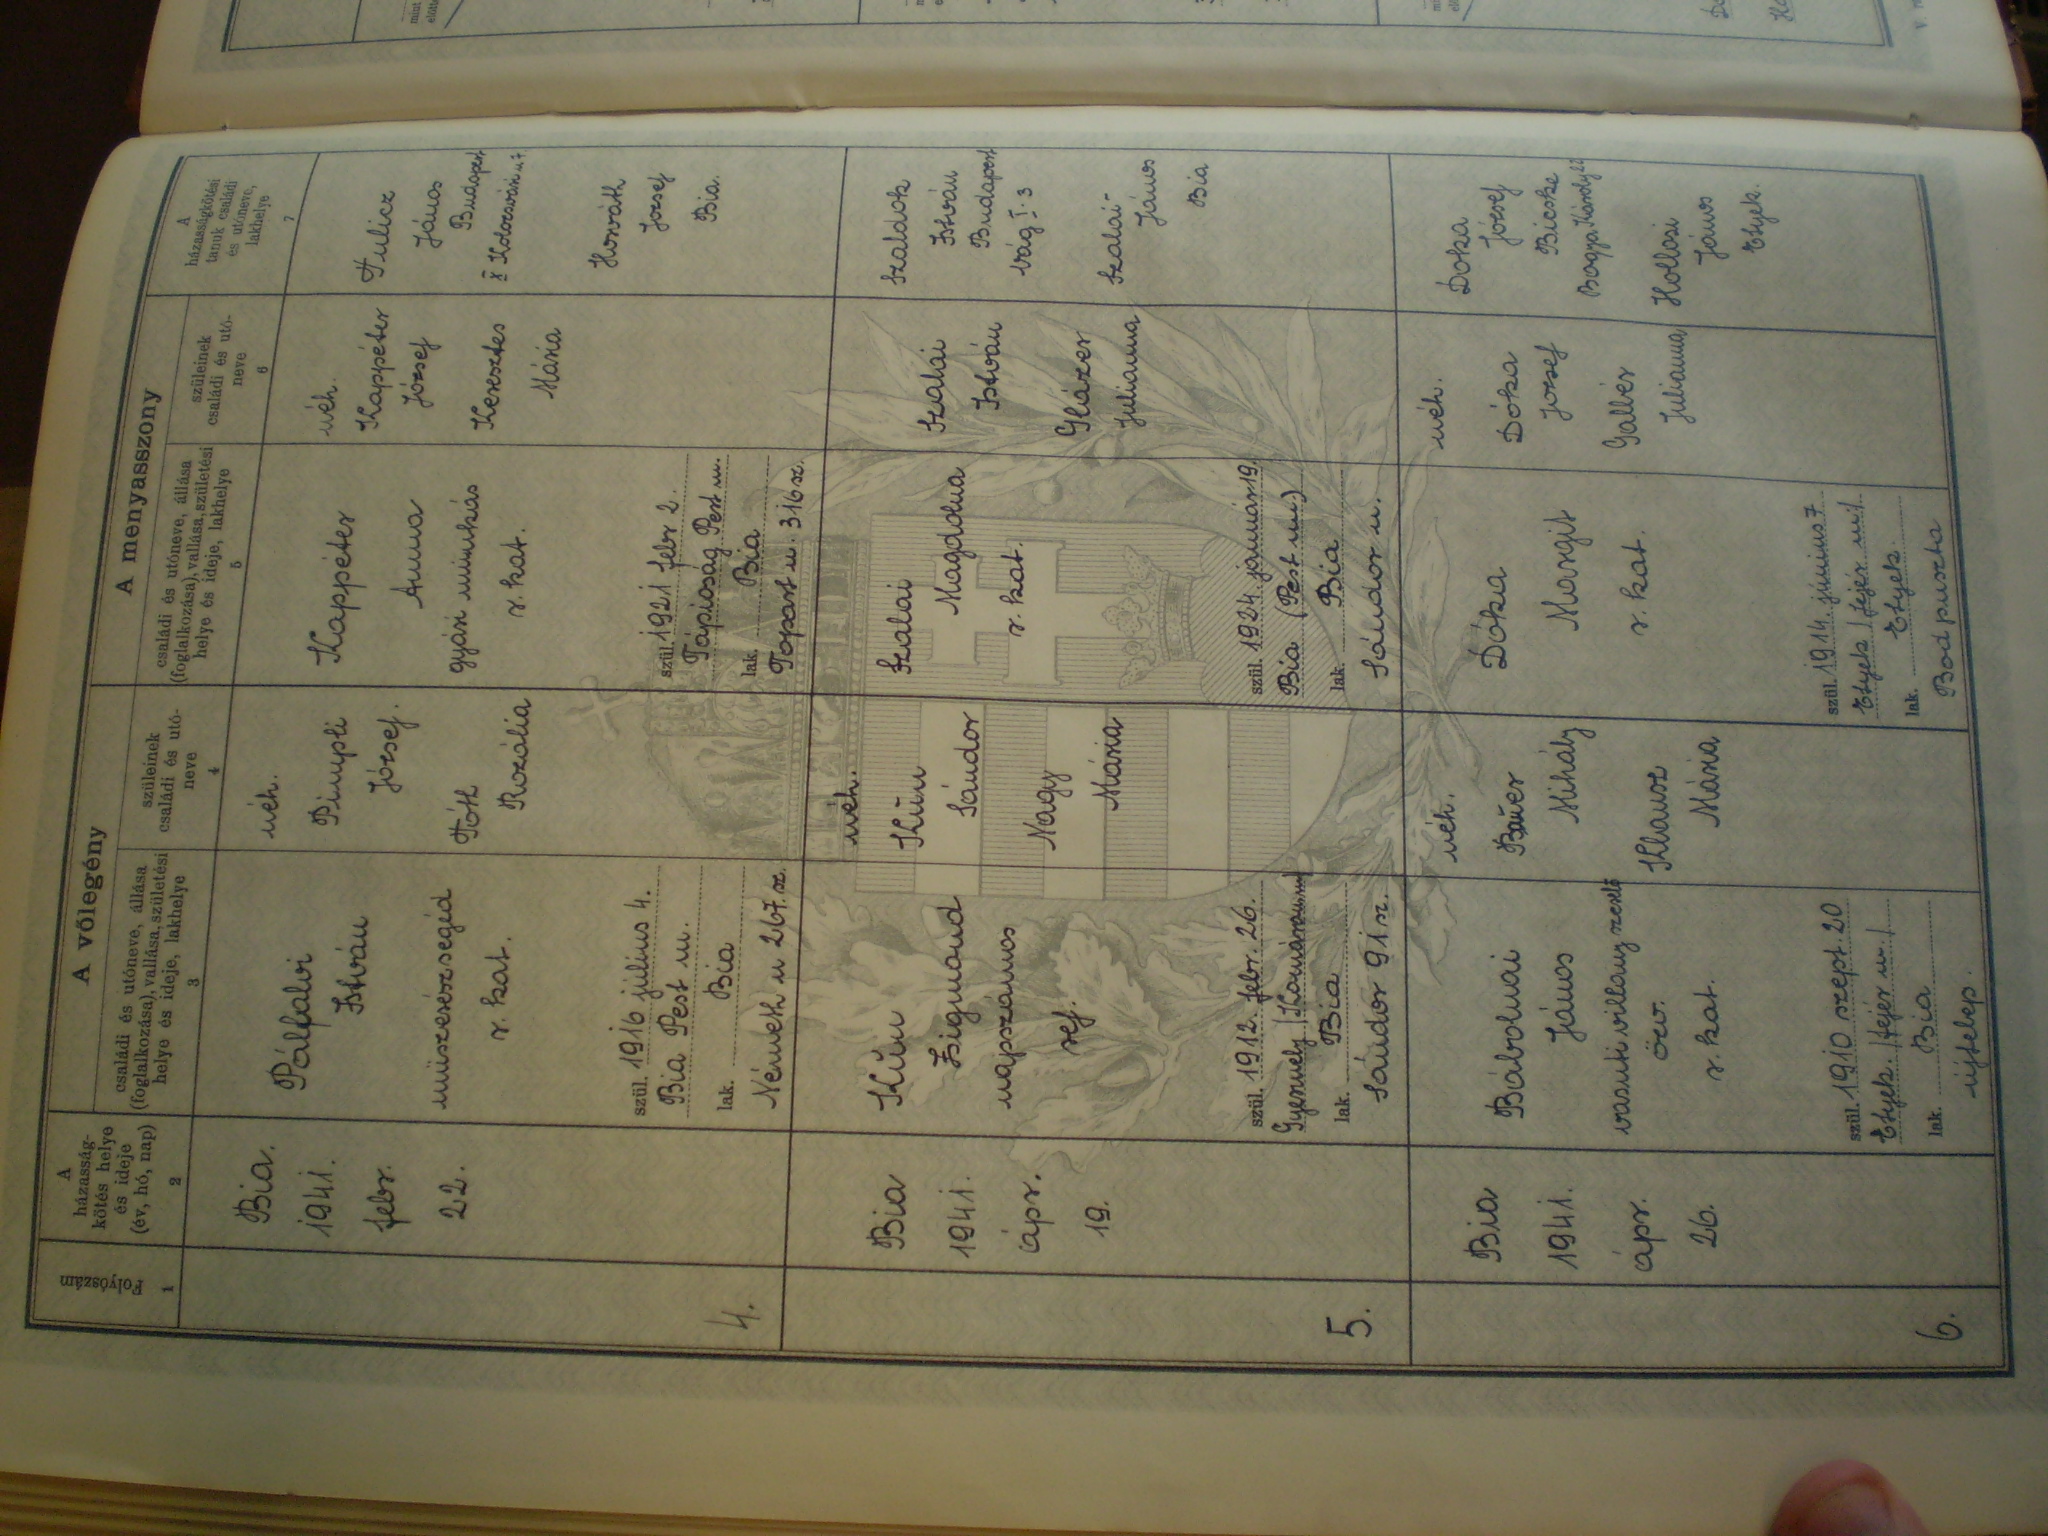 A vőlegény
A menyasszony
Folyószám
A
házasság-
kötés helye
és ideje
(év, hó, nap)
családi és utóneve, állása
(foglalkozása), vallása, születési
helye és ideje, lakhelye
szüleinek
családi és utó-
neve
családi és utóneve, állása
(foglalkozása), vallása, születési
helye és ideje, lakhelye
szüleinek
családi és utó-
neve
A
házasságkötési
tanuk családi
és utóneve,
lakhelye
1
2
3
4
5
6
7
4.
Bia.
1941.
febr.
22.
Pálfalvi
István
műszerészsegéd
r. kat.
szül. 1916 július 4.
Bia Pest m.
lak. Bia
Németh u 267. sz.
néh.
Pimpli
József.
Tóth
Rozália
Kappéter
Anna
gyári munkás
r. kat.
szül. 1921 febr 2.
Tápióság Pest m.
lak. Bia
Topart u. 316 sz.
néh.
Kappéter
József
Keresztes
Mária
János
Budapest
X Kolozsvári u 7
Horváth
József
Bia.
5.
Bia
1941.
ápr.
19.
Kún
Zsigmond
napszámos
ref.
szül. 1912. febr. 26.
Gyermely /Komárom m/
lak. Bia
Sándor 91. sz.
néh.
Kún
Sándor
Nagy
Mária
Szalai
Magdolna
r. kat.
szül. 1924. január 19.
Bia (Pest m.)
lak. Bia
Sándor u.
Szalai
István
Glázer
Julianna
Szaldok
István
Budapest
Vág I. 3
Szalai
János
Bia
6.
Bia
1941.
ápr.
26.
Bábolnai
János
vasuti villanyszerelő
özv.
r. kat.
szül. 1910 szept. 20
Etyek. /fejér m./
lak. Bia
újtelep.
néh.
Bauer
Mihály
Klausz
Mária
Dóka
Margit
r. kat.
szül. 1914. június 7
Etyek /fejér m/
lak. Etyek
Bod puszta
néh.
Dóka
József
Gallér
Julianna
Doka
József
Bicske
Hollósi
János
Etyek.